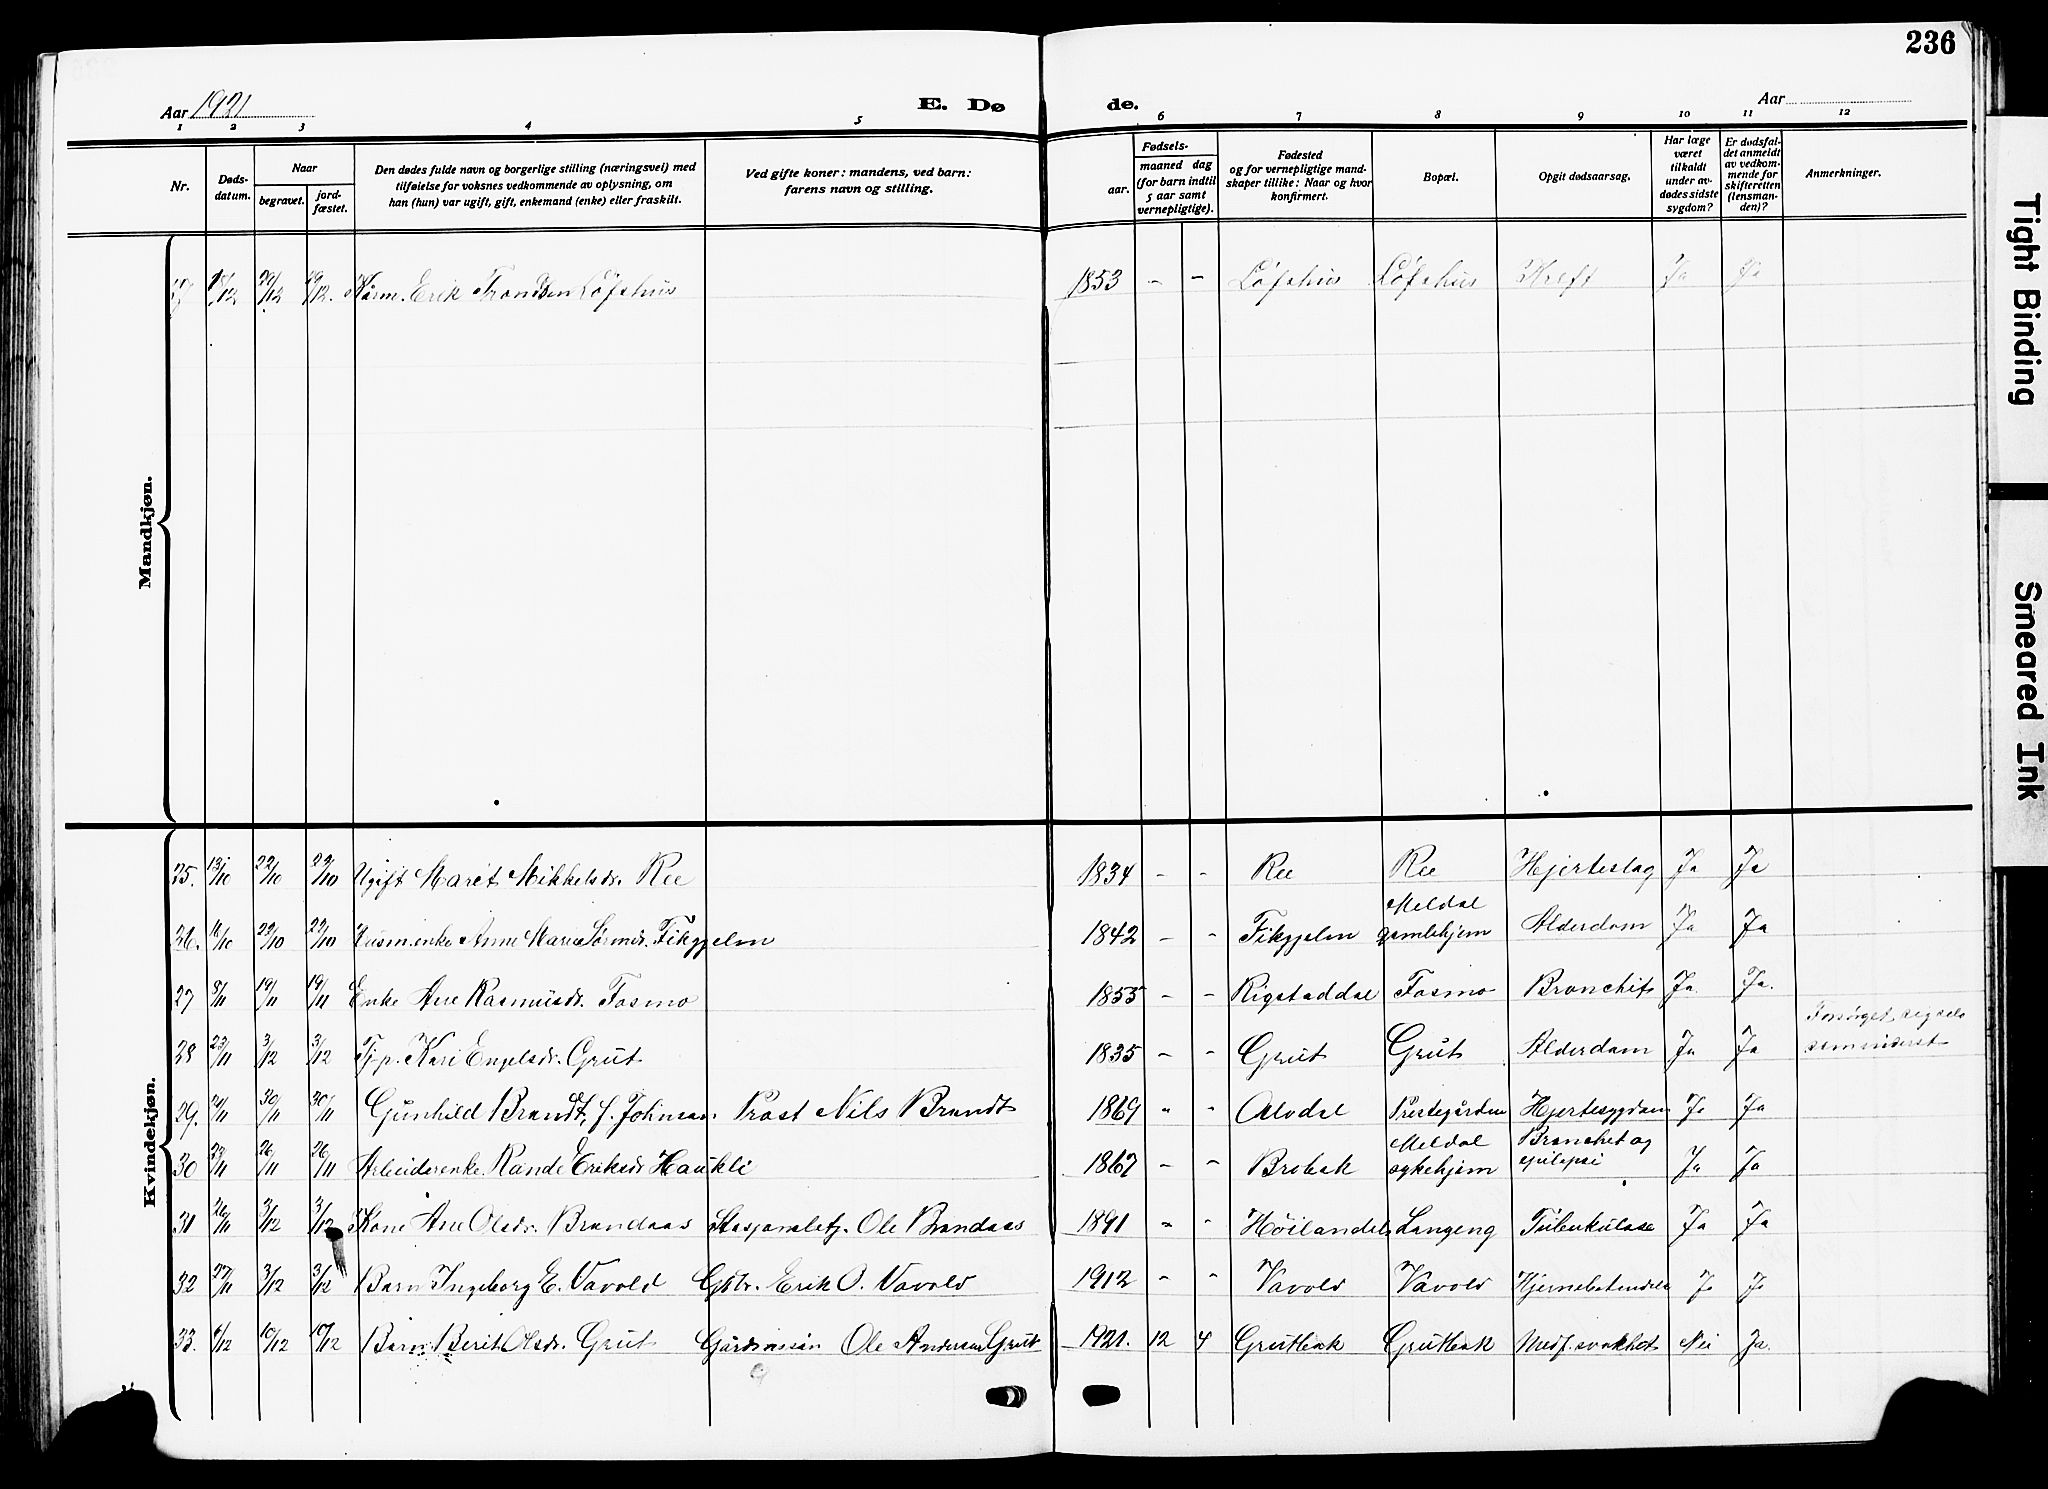 236
Aar 1921
E. Dø
de.
Aar
1 2 3 4 5 6 7 8 9 10 11 12
Nr.
Døds-
datum.
Naar
begravet.
jord-
fæstet.
Den dødes fulde navn og borgerlige stilling (næringsvei) med
tilføielse for voksnes vedkommende av oplysning, om
han (hun) var ugift, gift, enkemand (enke) eller fraskilt.
Ved gifte koner: mandens, ved barn:
farens navn og stilling.
Fødsels-
aar.
maaned dag
(for barn indtil
5 aar samt
vernepligtige).
Fødested
og for vernepligtige mand-
skaper tillike: Naar og hvor
konfirmert.
Bopæl.
Opgit dødsaarsag.
Har læge
været
tilkaldt
under av-
dødes sidste
sygdom?
Er dødsfal-
det anmeldt
av vedkom-
mende for
skifteretten
(lensman-
den)?
Anmerkninger.
Mandkjøn.
29/12 Kårm. Erik Trondsen Løfshus 1853 - - Løfshus Løfshus Kreft Ja Ja
Kvindekjøn.
25. 13/10 22/10 22/10 Ugift Marit Mikkelsdr. Ree 1834 - - Ree Ree Hjerteslag Ja Ja
26. 16/10 29/10 29/10 Husm.enke Anne Maria Sørensdr. Fikgjelm 1842 - - Fikgjelm Meldal gamlehjem Alderdom Ja Ja
27 8/11 19/11 19/11 Enke Ane Rasmusdr. Fosmo 1855 - - Rigstaddal Fosmo Bronchit Ja Ja.
28 23/11 3/12 3/12 Tj.p. Kari Engelsdr. Grut 1835 - - Grut Grut Alderdom Ja Ja Forsørget sig selv som inderst
29. 24/11 30/11 30/11 Gunhild Brandt, f. Johnsen. Prost Nils Brandt 1869 " " Alvdal Prestegården Hjertesygdom Ja Ja
30 23/11 26/11 26/11 Arbeiderenke Rande Eriksdr. Haukli 1867 - - Brobak Meldal sykehjem Bronchit og epilepsi Ja Ja
31 26/11 3/12 3/12 Kone Ane Olsdr. Brandaas Stasjonsbetj. Ole Brandaas 1891 " " Høilandet Langeng Tuberkulose Ja Ja
32 27/11 3/12 3/12 Barn Ingeborg E. Vavold Gbr. Erik O. Vavold 1912 - " Vavold Vavold Hjernebetendelse Ja Ja
33. 4/12 10/12 10/12 Barn Berit Olsdr. Grut Gårdmann Ole Andersen Grut 1921. 12 4 Grutbak Grutbak Medf. svakhet Nei Ja.
Tight Binding
Smeared Ink